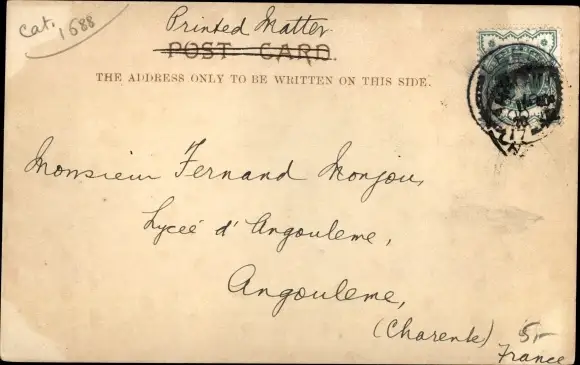 Cat. 1688
Printed Matter
POST CARD.
THE ADDRESS ONLY TO BE WRITTEN ON THIS SIDE.
Monsieur Fernand Monjou,
Lyceé d' Angouleme,
Angouleme,
(Charente)
5,-
France